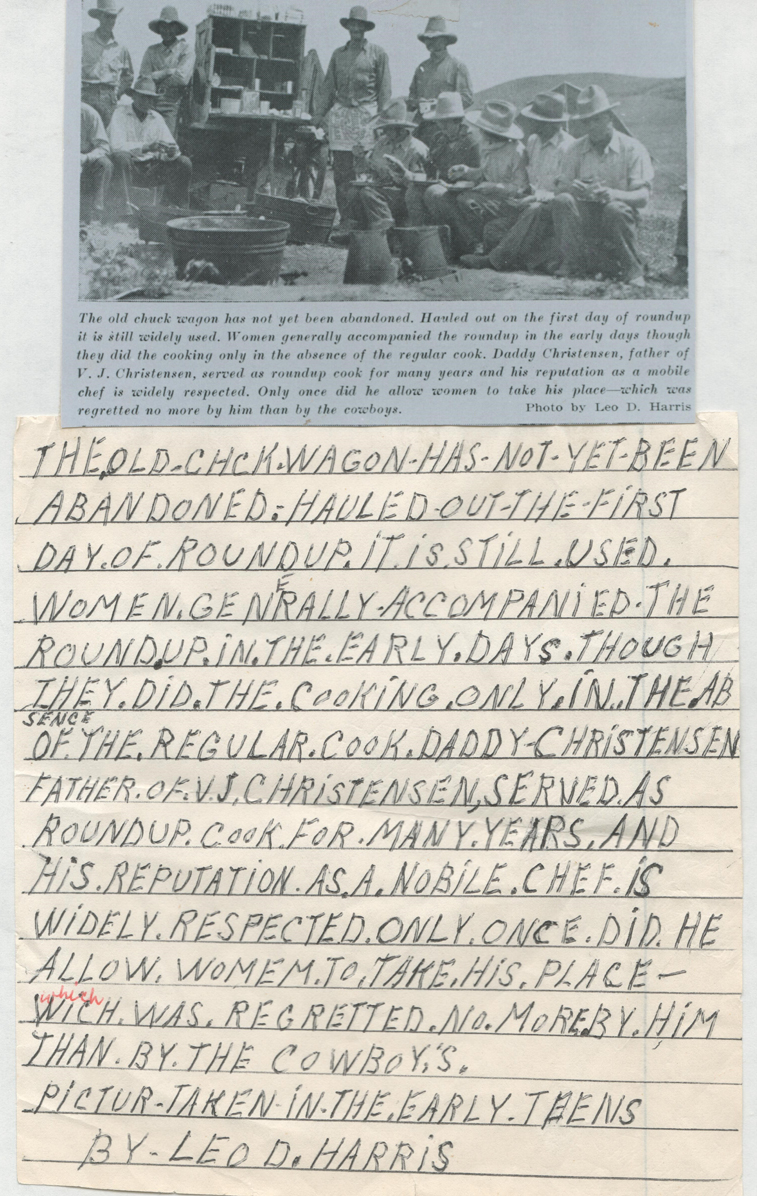 The old chuck wagon has not yet been abandoned. Hauled out on the first day of roundup
it is still widely used. Women generally accompanied the roundup in the early days though
they did the cooking only in the absence of the regular cook. Daddy Christensen, father of
V. J. Christensen, served as roundup cook for many years and his reputation as a mobile
chef is widely respected. Only once did he allow women to take his place—which was
regretted no more by him than by the cowboys.
Photo by Leo D. Harris
THE.OLD.CHCK.WAGON-HAS-NOT-YET-BEEN
ABANDONED.-HAULED-OUT-THE-FiRST
DAY.OF.ROUNDUP.iT.iS.STiLL.USED.
E
WOMEN.GENRALLY-ACCOMPANiED.THE
ROUND.UP.iN.THE.EARLY.DAYS.THOUGH
THEY.DiD.THE.COOKiNG.ONLY.iN.THE.AB
SENCE
OF.THE.REGULAR.COOK.DADDY-CHRiSTENSEN
FATHER.OF.V.J.CHRiSTENSEN,SERVED.AS
ROUNDUP.COOK.FOR.MANY.YEARS.AND
HiS.REPUTATiON.AS.A.NOBiLE.CHEF.iS
WiDELY.RESPECTED.ONLY.ONCE.DiD.HE
ALLOW.WOMEM.TO.TAKE.HiS.PLACE—
which
WiCH.WAS.REGRETTED.NO.MORE.BY.HiM
THAN.BY.THE COWBOY,S.
PiCTUR-TAKEN-iN-THE.EARLY.TEENS
BY-LEO D. HARRiS